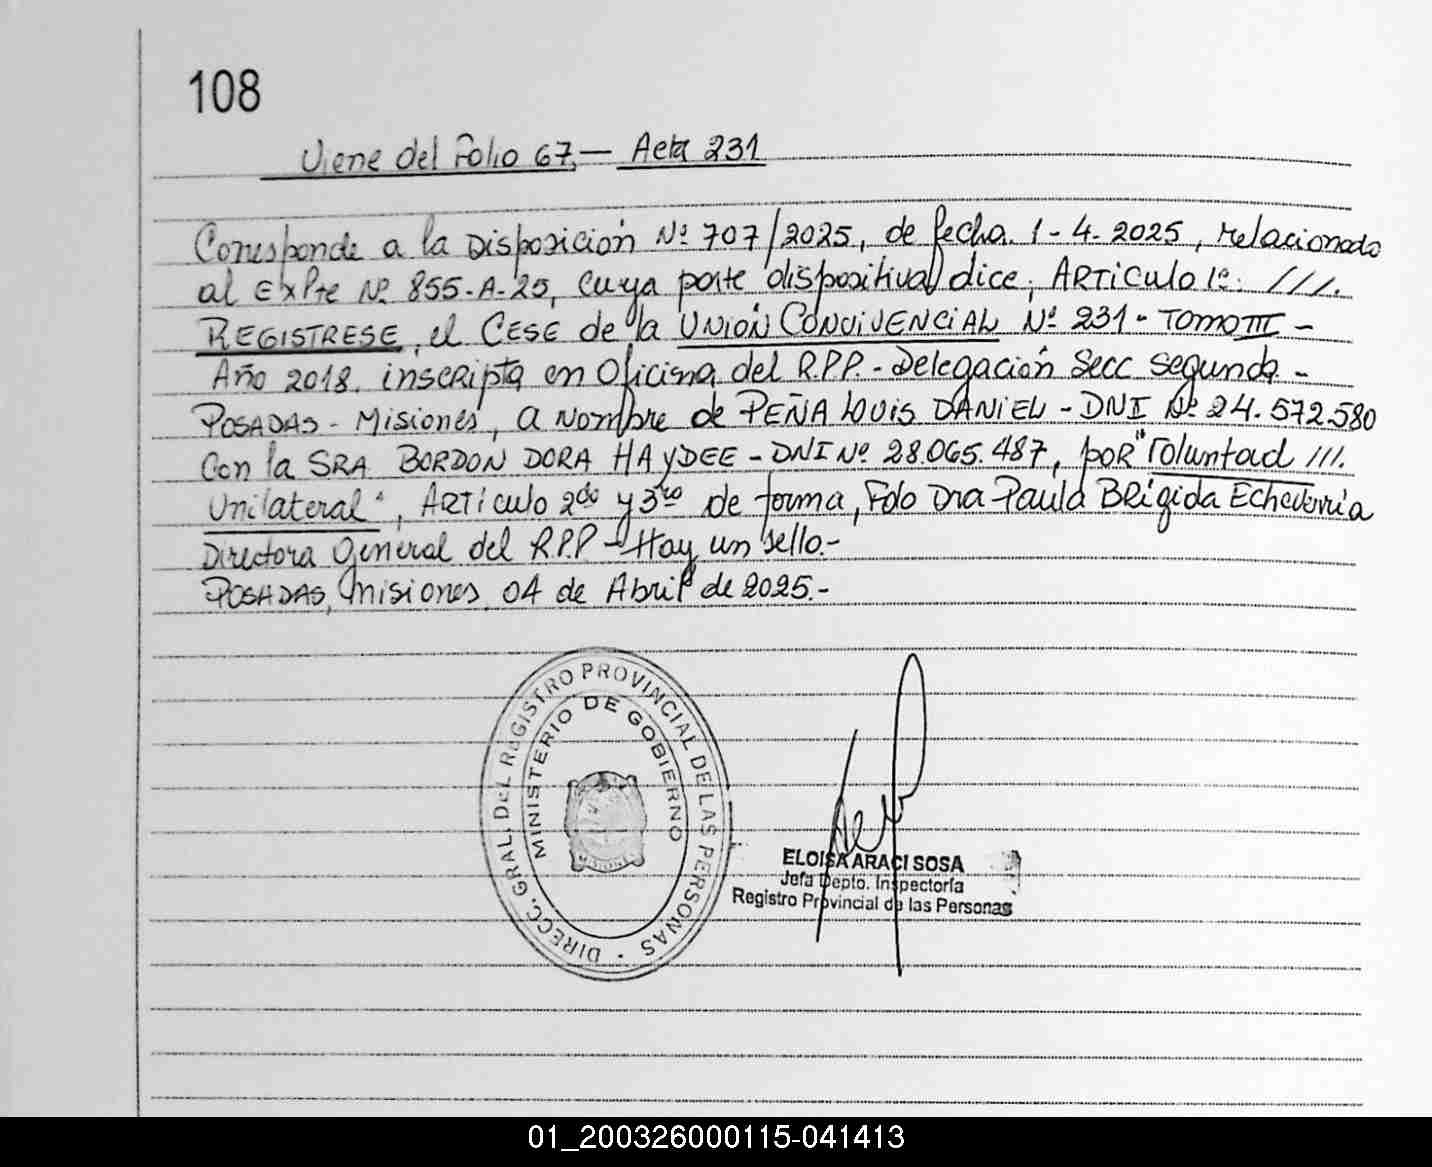 108
Viene del Folio 67,— Acta 231
Corresponde a la Disposición Nº 707/2025, de fecha. 1-4-2025, relacionado
al ExPte Nº 855-A-25, cuya parte dispositiva dice; ARTICULO 1º: ///.
REGISTRESE, el CESE de la UNIÓN CONVIVENCIAL Nº 231 - TOMO III -
Año 2018. inscripta en Oficina del R.P.P. - Delegación Secc Segunda -
POSADAS - Misiones, a Nombre de PEÑA LOUIS DANIEL - DNI Nº 24.572.580
Con la SRA BORDON DORA HAYDEE - DNI Nº 28.065.487, por "Voluntad ///.
Unilateral", ARTÍCULO 2do y 3ro de forma, Fdo Dra Paula BRígida Echeverria
Directora General del R.P.P - Hay un sello.-
POSADAS, Misiones 04 de Abril de 2025.-
DIRECC. GRAL. DEL REGISTRO PROVINCIAL DE LAS PERSONAS
MINISTERIO DE GOBIERNO
MISIONES
ELOISA ARACI SOSA
Jefa Depto. Inspectoría
Registro Provincial de las Personas
01_200326000115-041413